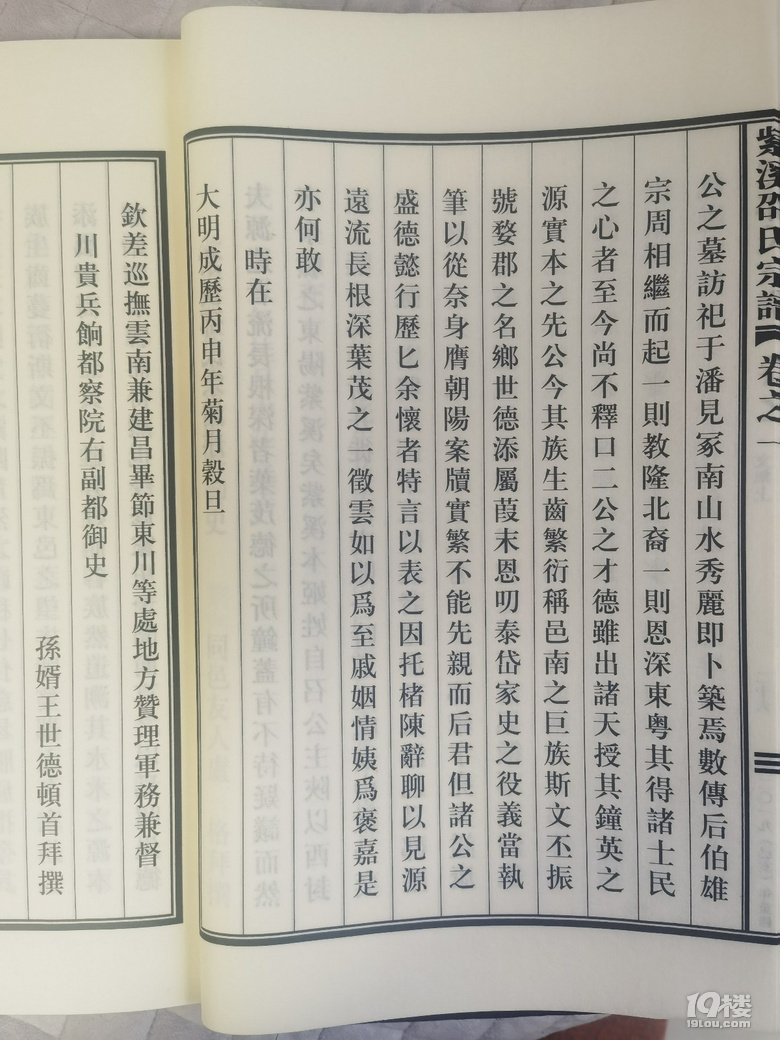 紫溪邵氏宗譜 卷之一
公之墓訪祀于潘見冢南山水秀麗即卜築焉數傳后伯雄
宗周相繼而起一則教隆北裔一則恩深東粵其得諸士民
之心者至今尚不釋口二公之才德雖出諸天授其鐘英之
源實本之先公今其族生齒繁衍稱邑南之巨族斯文丕振
號婺郡之名鄉世德添屬葭末恩叨泰岱家史之役義當執
筆以從奈身膺朝陽案牘實繁不能先親而后君但諸公之
盛德懿行歷匕余懷者特言以表之因托楮陳辭聊以見源
遠流長根深葉茂之一徵雲如以爲至戚姻情姨爲褒嘉是
亦何敢
時在
大明成歷丙申年菊月穀旦
欽差巡撫雲南兼建昌畢節東川等處地方贊理軍務兼督
川貴兵餉都察院右副都御史
孫婿王世德頓首拜撰
19楼
19lou.com